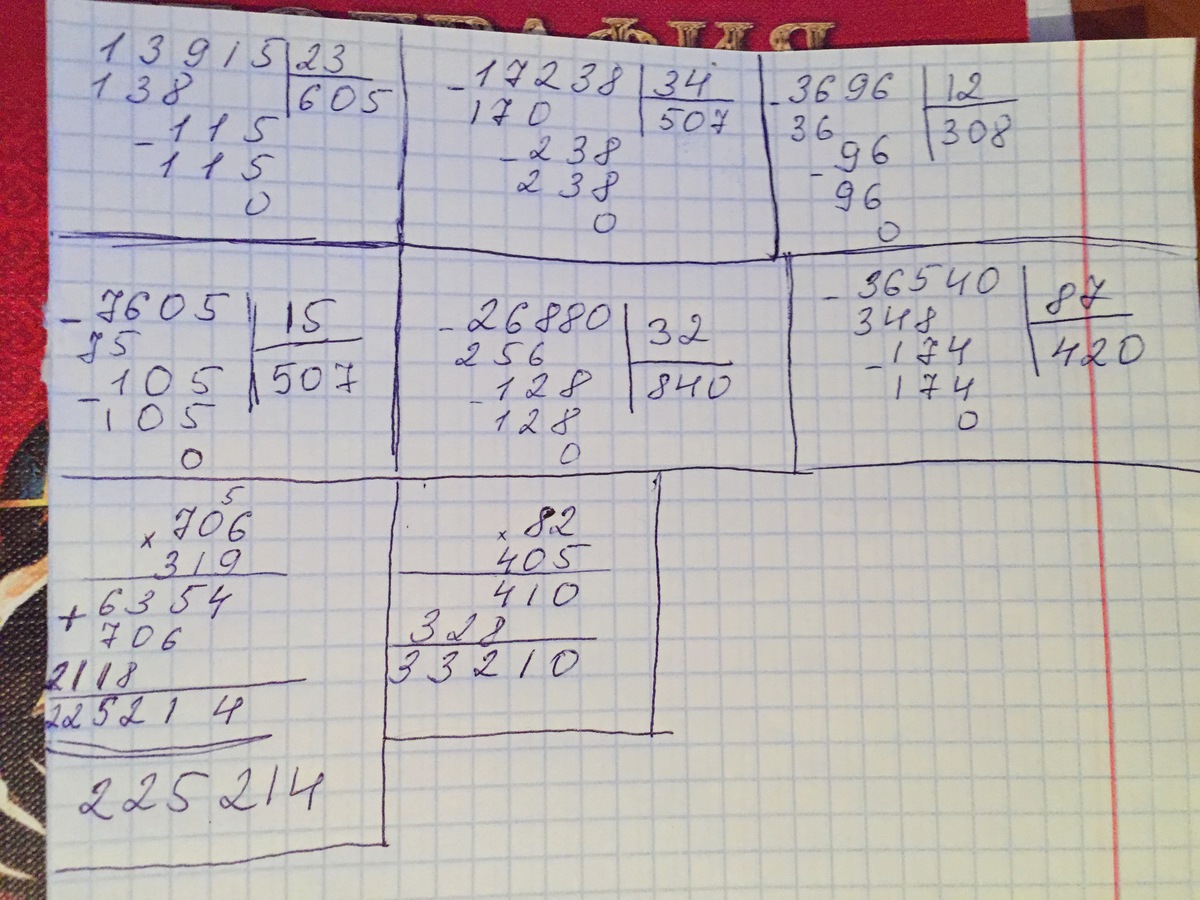 ГРАФИЯ
13915 23
138 605
-115
115
0
-17238 34
170 507
-238
238
0
-3696 12
36 308
-96
96
0
-7605 15
75
-105 507
105
0
-26880 32
256
-128 840
128
0
-36540 87
348
-174 420
174
0
5
×706
319
+6354
706
2118
225214
225214
×82
405
410
328
33210